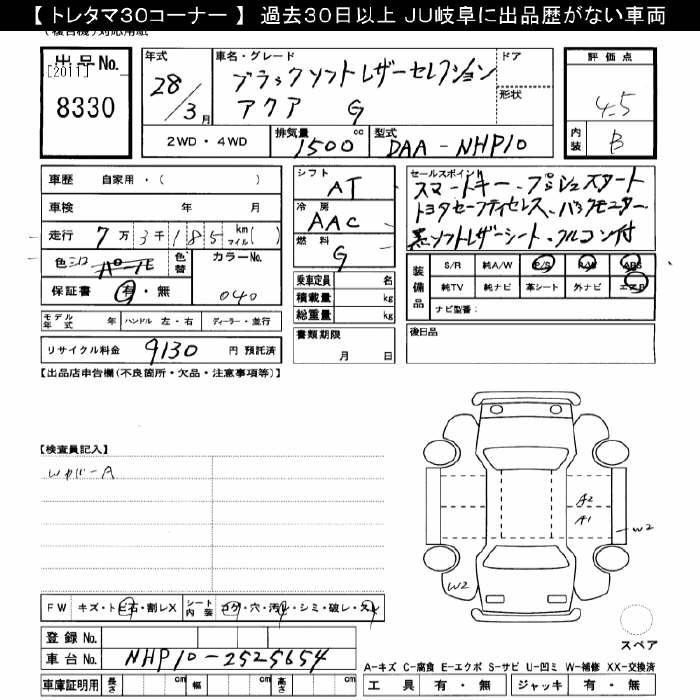 【 トレタマ30コーナー 】 過去30日以上 JU岐阜に出品歴がない車両
出品No.
[2011]
8330
年式
28/3月
車名・グレード
ブラックソフトレザーセレクション
アクア G
ドア
形状
評価点
4.5
内装
B
2WD・4WD
排気量
1500cc
型式
DAA-NHP10
車歴 自家用・( )
車検 年 月
走行 7万3千185 km マイル( )
色 シロ パール
色替
カラーNo.
040
保証書 有・無
モデル年式 年
ハンドル 左・右
ディーラー・並行
リサイクル料金 9130 円 預託済
シフト
AT
冷房
AAC
燃料
G
乗車定員 名
積載量 kg
総重量 kg
書類期限
月 日
セールスポイント
スマートキー・プッシュスタート
トヨタセーフティセンス・バックモニター
黒ソフトレザーシート・クルコン付
装備品
S/R 純A/W P/S P/W ABS
純TV 純ナビ 革シート 外ナビ エアB
ナビ型番:
後日品
【出品店申告欄(不良箇所・欠品・注意事項等)】
【検査員記入】
A2
A1
W2
W2
FW キズ・トビ石・割レX
シート内装 コゲ・穴・汚レ・シミ・破レ・スレ
登録No.
車台No. NHP10-2525654
スペア
A-キズ C-腐食 E-エクボ S-サビ U-凹ミ W-補修 XX-交換済
車庫証明用 長さ cm 幅 cm 高さ cm
工具 有・無 ジャッキ 有・無